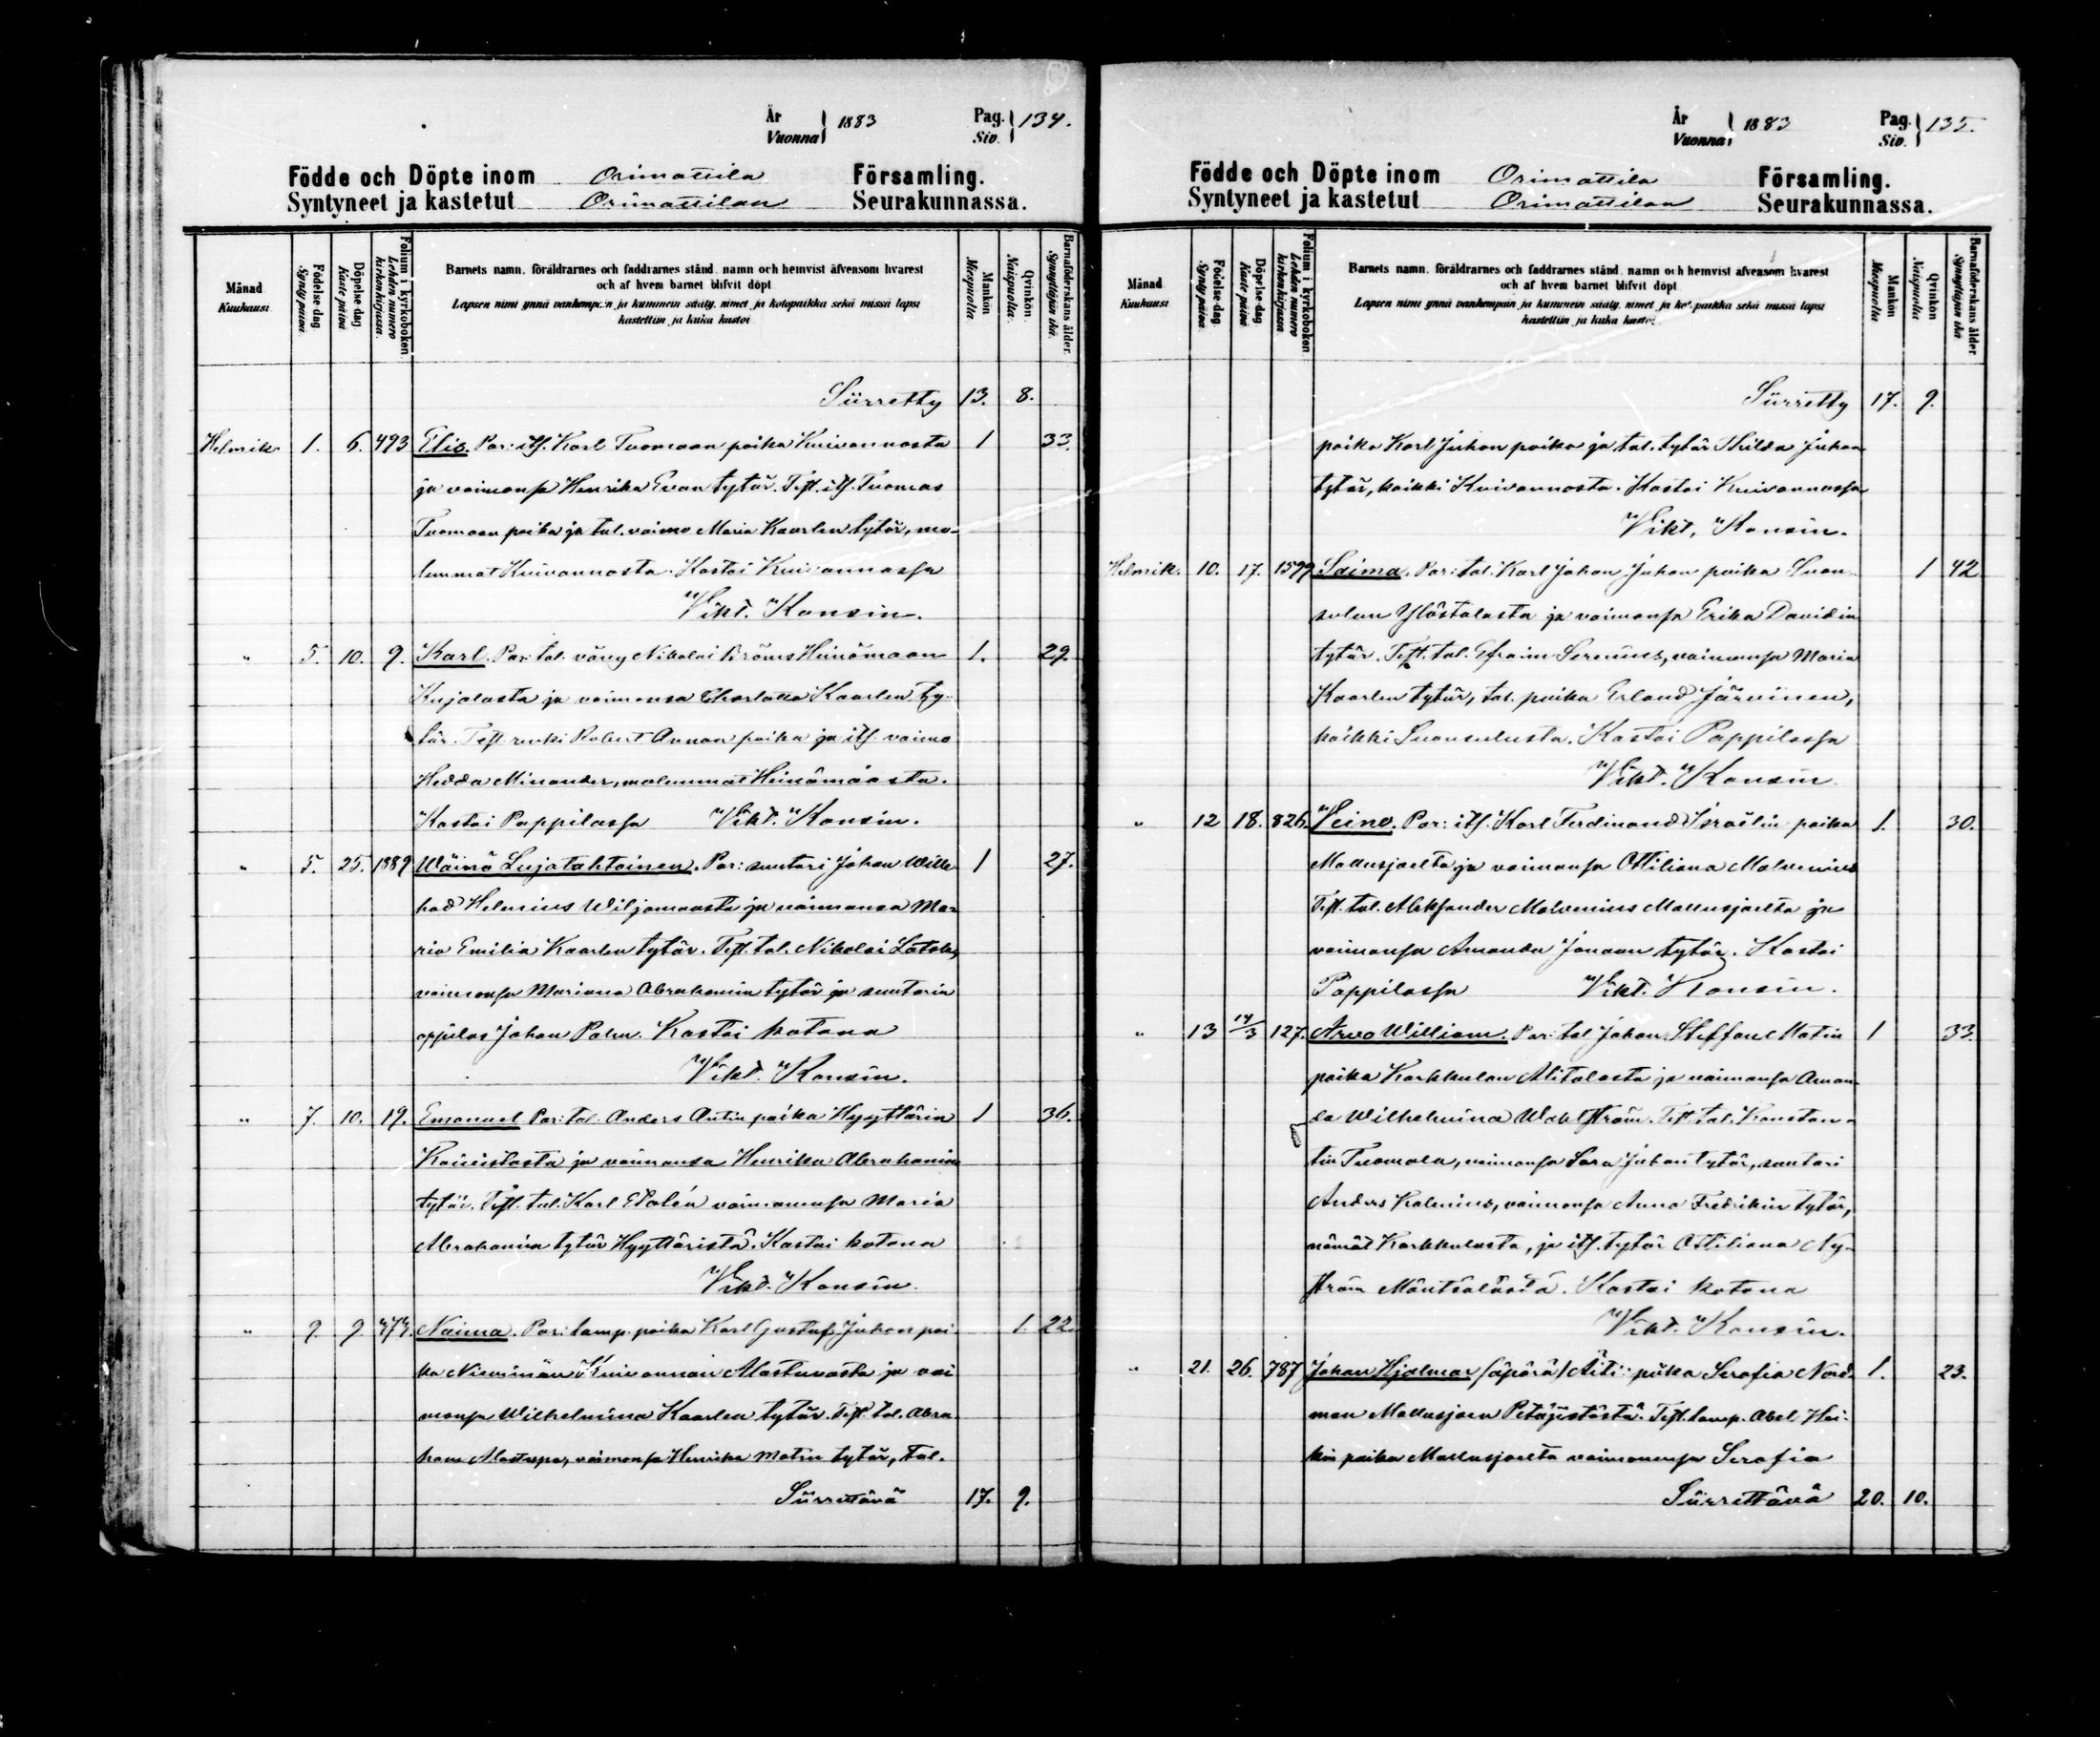 År Vuonna 1883 Pag. Siv. 134.
Födde och Döpte inom Orimattila Församling.
Syntyneet ja kastetut Orimattilan Seurakunnassa.
Månad Kuukausi
Födelse-dag Synty päivä
Döpelse-dag Kaste päivä
Folium i kyrkoboken Lehden numero kirkonkirjassa
Barnets namn, föräldrarnes och faddrarnes stånd, namn och hemvist äfvensom hvarest
och af hvem barnet blifvit döpt
Lapsen nimi ynnä vanhempain ja kummein sääty, nimet ja kotopaikka sekä missä lapsi
kastettiin ja kuka kastoi
Mankön Miespuolia
Qvinkön Naispuolia
Barnaföderskans ålder Synnyttäjän ikä
Siirretty 13. 8.
Helmik. 1. 6. 493 Elis. Par: itf. Karl Tuomaan poika Kuivannosta 1 33.
ja vaimonsa Henrika Evan tytär. Test. itf. Tuomas
Tuomaan poika ja tal. vaimo Maria Kaarlen tytär, mo-
lemmat Kuivannosta. Kastoi Kuivannossa
Vikt. Konsin.
" 5. 10. 9. Karl. Par: tal. vävy Nikolai Ströms Heinämaan 1. 29.
Kujalasta ja vaimonsa Charlotta Kaarlen ty-
tär. Test. renki Robert Annan poika ja itf. vaimo
Hedda Minander, molemmat Heinämaasta.
Kastoi Pappilassa Vikt. Konsin.
" 5. 25. 1889 Wäinö Lujatahtoinen. Par: suutari Johan Wille- 1 27.
had Helenius Wiljamaasta ja vaimonsa Ma-
ria Emilia Kaarlen tytär. Test. tal. Nikolai Latola,
vaimonsa Mariana Abrahamin tytär ja suutarin
oppilas Johan Palm. Kastoi kotona
Vikt. Konsin.
" 7. 10. 19. Emanuel Par: tal. Anders Antin poika Hyyttärin 1 36.
ja vaimonsa Henrika Abrahamin
tytär. Test. tal. Karl Edolén vaimonsa Maria
Abrahamin tytär Hyyttäristä. Kastoi kotona
Vikt. Konsin.
" 9. 9. 474. Naima. Par: lamp. poika Karl Gustaf Juhon poi- 1. 22.
ka Nieminän Kuivannon Alastuvasta ja vai
monsa Wilhelmina Kaarlen tytär. Test. tal. Abra
ham Alastupa, vaimonsa Henrika Matin tytär, tal.
Siirrettävä 17. 9.
År Vuonna 1883 Pag. Siv. 135.
Födde och Döpte inom Orimattila Församling.
Syntyneet ja kastetut Orimattilan Seurakunnassa.
Månad Kuukausi
Födelse-dag Synty päivä
Döpelse-dag Kaste päivä
Folium i kyrkoboken Lehden numero kirkonkirjassa
Barnets namn, föräldrarnes och faddrarnes stånd, namn och hemvist äfvensom hvarest
och af hvem barnet blifvit döpt
Lapsen nimi ynnä vanhempain ja kummein sääty, nimet ja kotopaikka sekä missä lapsi
kastettiin ja kuka kastoi
Mankön Miespuolia
Qvinkön Naispuolia
Barnaföderskans ålder Synnyttäjän ikä
Siirretty 17. 9.
poika Karl Juhon poika ja tal. tytär Hilda Juhan
tytär, kaikki Kuivannosta. Kastoi Kuivannossa
Vikt. Konsin.
Helmik. 10. 17. 1599 Saima. Par: tal. Karl Johan Juhon poika Suon- 1 42
sulun Ylöstalosta ja vaimonsa Erika Davidin
tytär. Test. tal. Efraim Serenius, vaimonsa Maria
Kaarlen tytär, tal. poika Erland Järvinen,
kaikki Suonsulusta. Kastoi Pappilassa
Vikt. Konsin
" 12 18. 826. Veino. Par: itf. Karl Ferdinand Israëlin poika 1. 30.
Mallusjoelta ja vaimonsa Ottiliana Malvenius
Test. tal. Aleksander Malvenius Mallusjoelta ja
vaimonsa Amanda Jonaan tytär. Kastoi
Pappilassa Vikt. Konsin.
" 13 14/3 127. Arvo William. Par: tal Johan Steffan Matin 1 33.
poika Karkkulan Alitalosta ja vaimonsa Aman-
da Wilhelmina Wahlström. Test. tal. Konstan-
tin Tuomola, vaimonsa Sara Juhan tytär, suutari
Anders Kalenius, vaimonsa Anna Fredrikin tytär,
nämät Karkkulasta, ja itf. tytär Ottiliana Ny-
ström Mäntsälästä. Kastoi kotona
Vikt. Konsin.
" 21. 26. 787 Johan Hjalmar (äpärä) Äiti: piika Serafia Nord- 1. 23.
man Mallusjoen Petäjistöstä. Test. lamp. Abel Hei-
kin poika Mallusjoelta vaimonensa Serafia
Siirrettävä 20. 10.